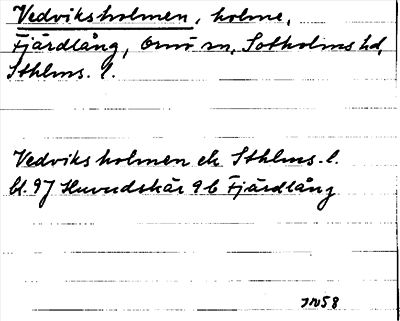 Vedviksholmen, holme,
Fjärdlång, Ornö sn, Sotholms hd,
Sthlms. l.
Vedviksholmen ek Sthlms. l.
bl. 97 Huvudskär 9 b Fjärdlång
1958